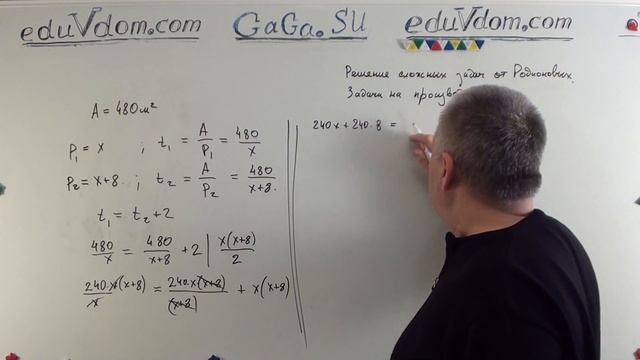 eduVdom.com GaGa.SU eduVdom.com
Решение сложных задач от Родионовых.
Задачи на
A = 480 м²
P₁ = x ; t₁ = A/P₁ = 480/x
P₂ = x+8 ; t₂ = A/P₂ = 480/(x+8).
t₁ = t₂ + 2
480/x = 480/(x+8) + 2 | x(x+8)/2
240·x(x+8)/x = 240·x(x+8)/(x+8) + x(x+8)
240x + 240·8 =